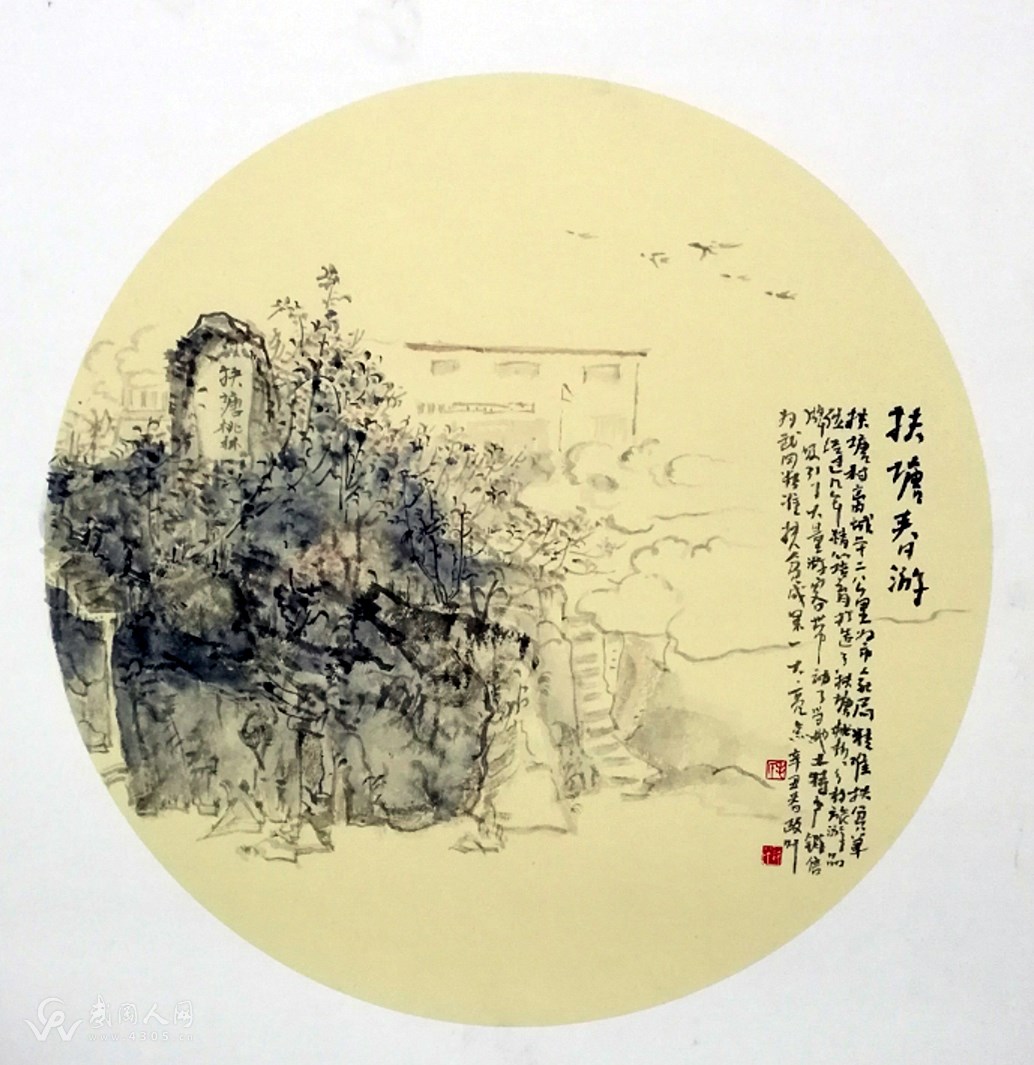 扶塘春游
扶塘村离城卄二公里为市人社局精准扶贫单
位经过几年精心培育打造了扶塘桃林乡村旅游品
牌吸引了大量游客带动了当地土特产销售
为武冈精准扶贫成果一大亮点辛丑春政叶
扶塘桃林
武冈人网
www.4305.cn